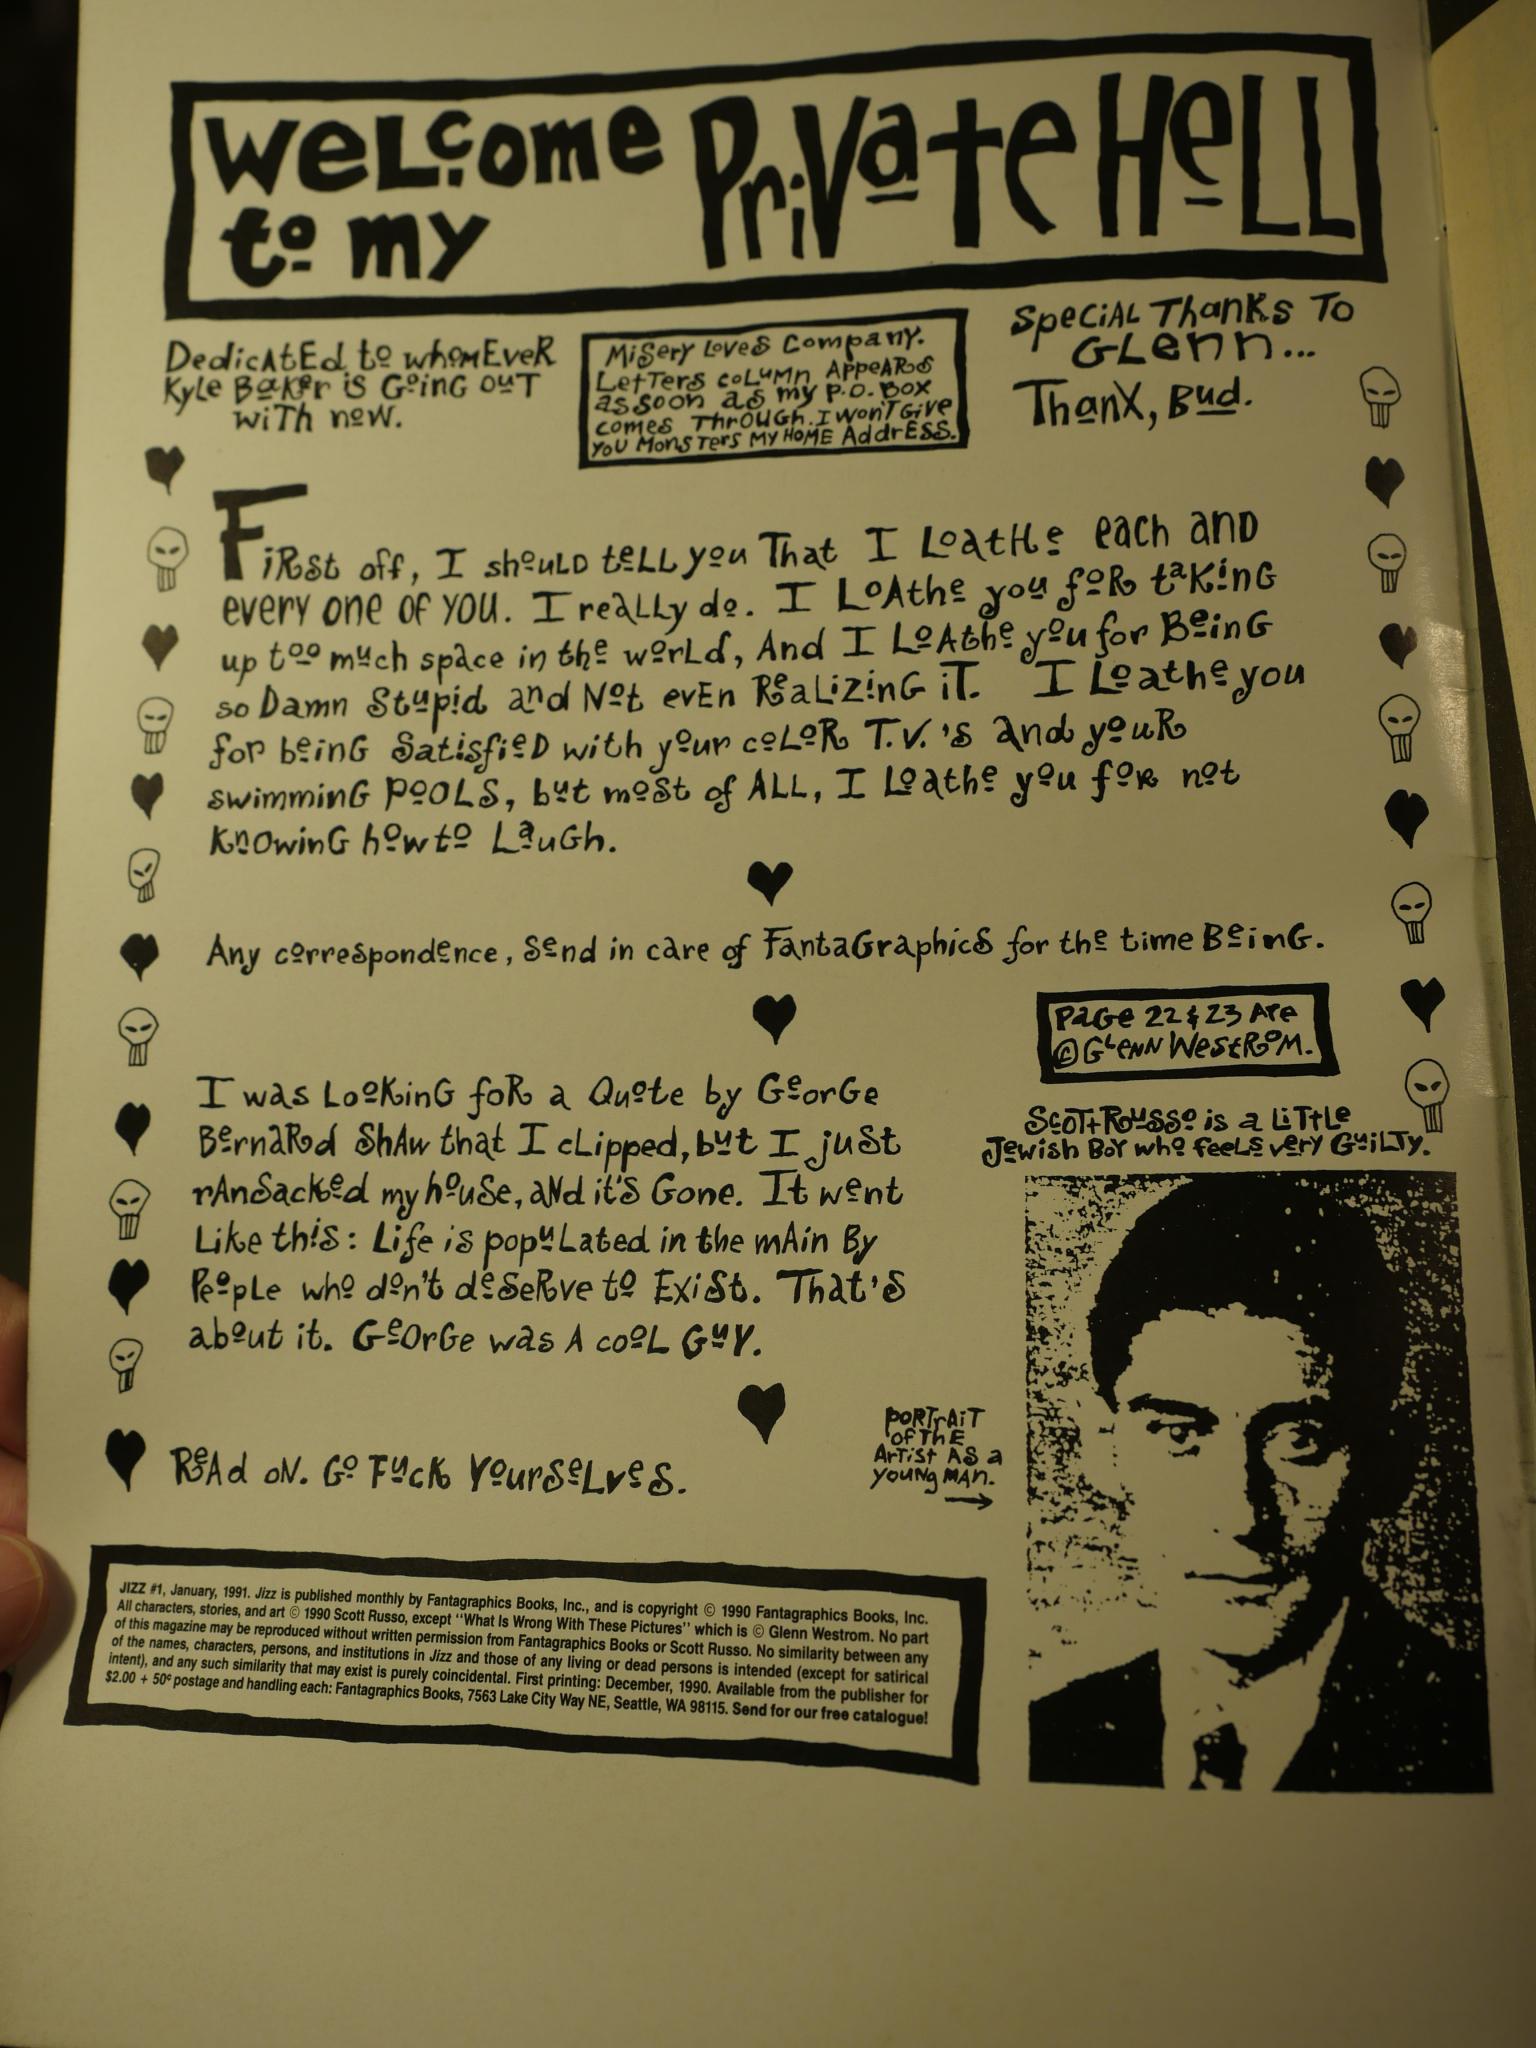 Welcome
to my
Private Hell
Dedicated to whomever
Kyle Baker is going out
with now.
Misery loves company.
Letters column appears
as soon as my P.O. Box
comes through. I won't give
you monsters my home address.
Special thanks to
Glenn...
Thanx, Bud.
First off, I should tell you that I loathe each and
every one of you. I really do. I loathe you for taking
up too much space in the world, and I loathe you for being
so damn stupid and not even realizing it. I loathe you
for being satisfied with your color T.V.'s and your
swimming pools, but most of all, I loathe you for not
knowing how to laugh.
Any correspondence, send in care of Fantagraphics for the time being.
Page 22 & 23 are
© Glenn Westrom.
I was looking for a quote by George
Bernard Shaw that I clipped, but I just
ransacked my house, and it's gone. It went
like this: Life is populated in the main by
people who don't deserve to exist. That's
about it. George was a cool guy.
Scott Russo is a little
Jewish boy who feels very guilty.
Portrait
of the
artist as a
young man.
Read on. Go fuck yourselves.
JIZZ #1, January, 1991. Jizz is published monthly by Fantagraphics Books, Inc., and is copyright © 1990 Fantagraphics Books, Inc.
All characters, stories, and art © 1990 Scott Russo, except "What Is Wrong With These Pictures" which is © Glenn Westrom. No part
of this magazine may be reproduced without written permission from Fantagraphics Books or Scott Russo. No similarity between any
of the names, characters, persons, and institutions in Jizz and those of any living or dead persons is intended (except for satirical
intent), and any such similarity that may exist is purely coincidental. First printing: December, 1990. Available from the publisher for
$2.00 + 50¢ postage and handling each: Fantagraphics Books, 7563 Lake City Way NE, Seattle, WA 98115. Send for our free catalogue!